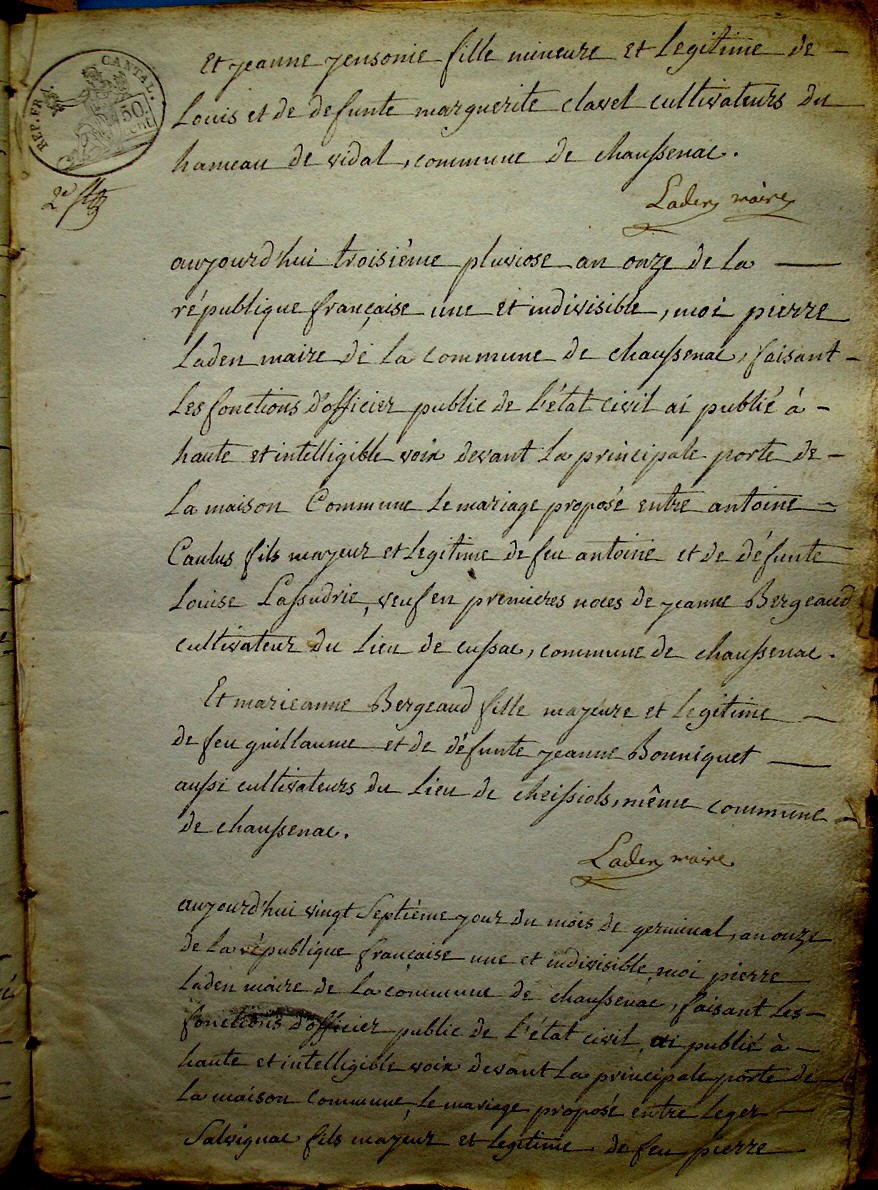 REP. FR. CANTAL.
50
Cent.
2e
et jeanne jensonie fille mineure et legitime de
Louis et de defunte marguerite clavel cultivateurs du
hameau de vidal, commune de chaussenac.
Laden maire
aujourd'hui troisième pluviose an onze de la
république française une et indivisible, moi pierre
Laden maire de la commune de chaussenac, faisant
les fonctions d'officier public de l'état civil ai publié à
haute et intelligible voix devant la principale porte de
la maison Commune le mariage proposé entre antoine
Caulus fils majeur et legitime de feu antoine et de défunte
Louise Lassudrie, veuf en premieres noces de jeanne Bergeaud
cultivateur du lieu de cussac, commune de chaussenac.
Et marieanne Bergeaud fille majeure et legitime
de feu guillaume et de défunte jeanne Bonniquet
aussi cultivateurs du lieu de cheissiols, même commune
de chaussenac.
Laden maire
aujourd'hui vingt septième jour du mois de germinal, an onze
de la république française une et indivisible, moi pierre
Laden maire de la commune de chaussenac, faisant les
fonctions d'officier public de l'état civil, ai publié à
haute et intelligible voix devant la principale porte de
la maison commune, le mariage proposé entre leger
Salvignac fils majeur et legitime de feu pierre